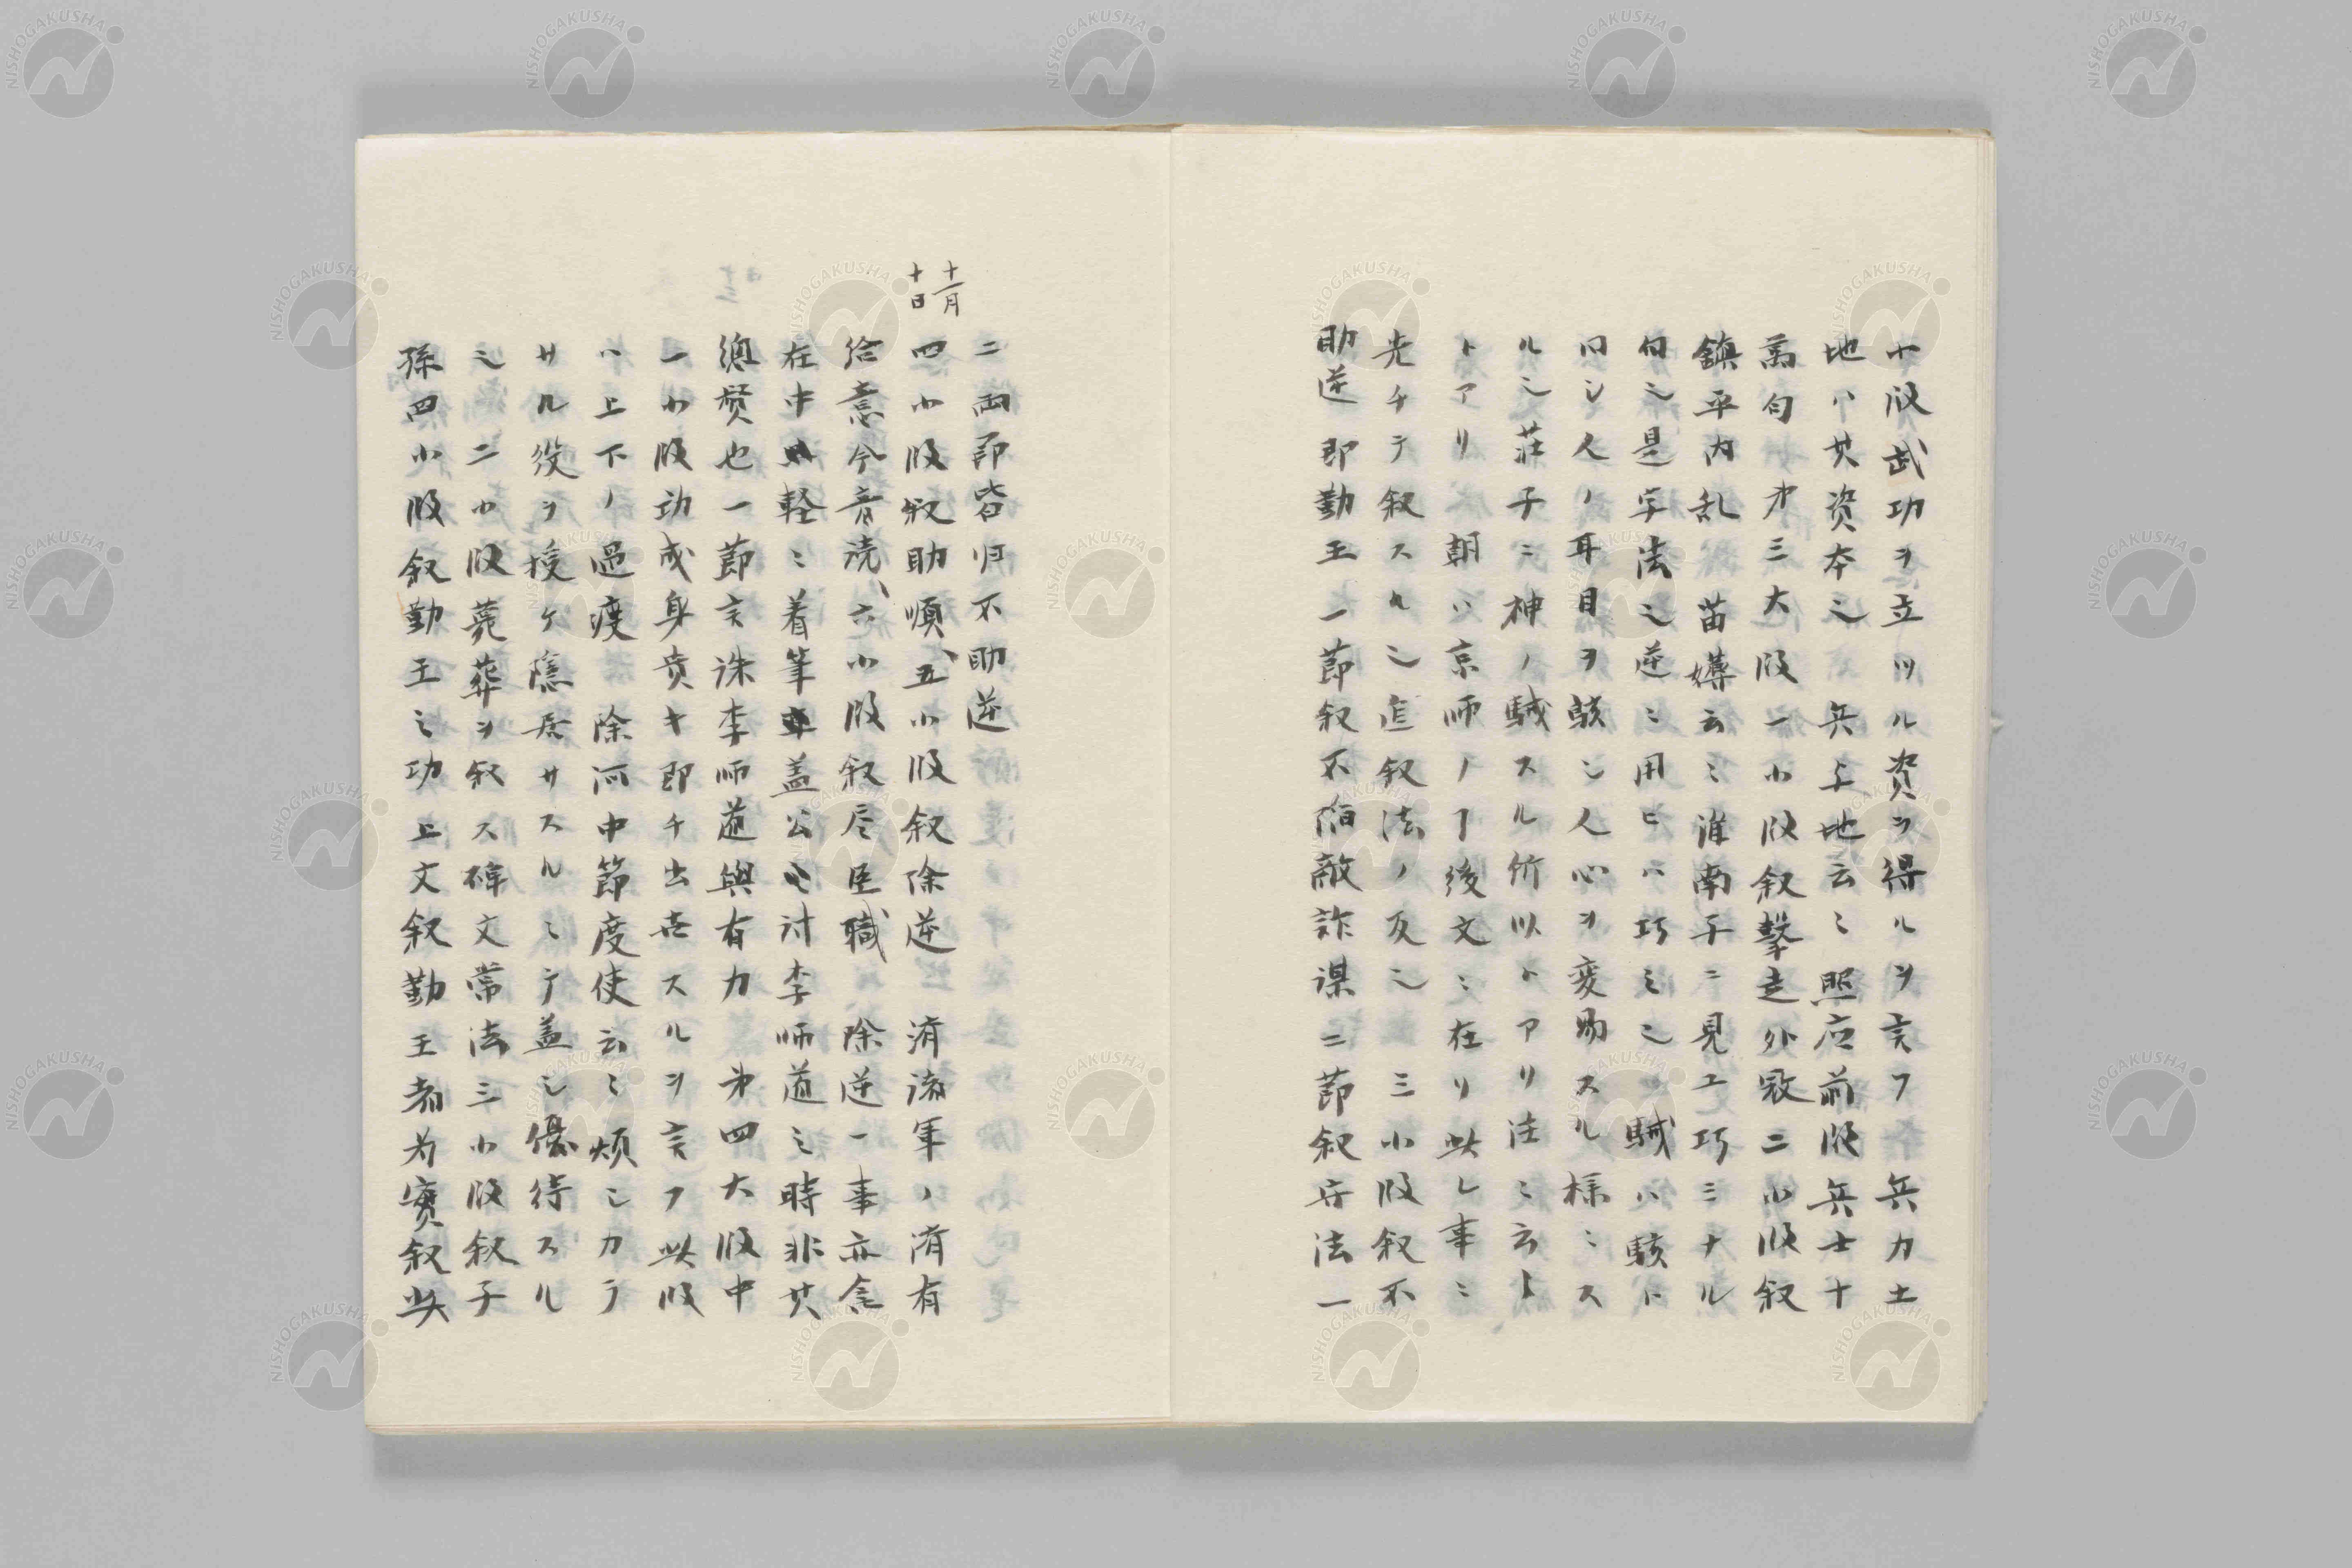 十段武功ヲ立ツル資ヲ得ルヲ言フ 兵力土
地ハ其資本也 兵与地云々照応前段兵士十
萬句 才三大段一小段叙撃走外寇二小段叙
鎮平内乱 苗嬶云々淮南子ニ見エ巧ミナル
句也是字法也逆ニ用ヒハ巧ミ也 駴ハ駭ト
同シ人ノ耳目ヲ駭シ人心ヲ変易スル様ニス
ル也荘子ニ神ノ駴スル所以トアリ注ニ云々
トアリ 朝ハ京師ノ丁後文ニ在リ此レ事ニ
先チテ叙スル也追叙法ノ反也 三小段叙不
助逆即勤王一節叙不陥敵詐謀二節叙守法一
二両節皆归不助逆
十一月
十日
四小段叙助順、五小段叙除逆 済諸軍ノ済有
給意今音読、六小段叙尽臣職 除逆一事亦含
在中 軽ニ着筆 蓋公 討李師道之時非其
総賛也一節言誅李師道與有力 才四大段中
一小段功成身貴キ即チ出去スルヲ言フ此段
ハ上下ノ過渡 除河中節度使云々煩シカラ
サル役ヲ授ケ隠居サスルニテ蓋シ優待スル
也二小段薨葬ヲ叙ス碑文常法三小段叙子
孫四小段叙勤王之功上文叙勤王者为實叙此